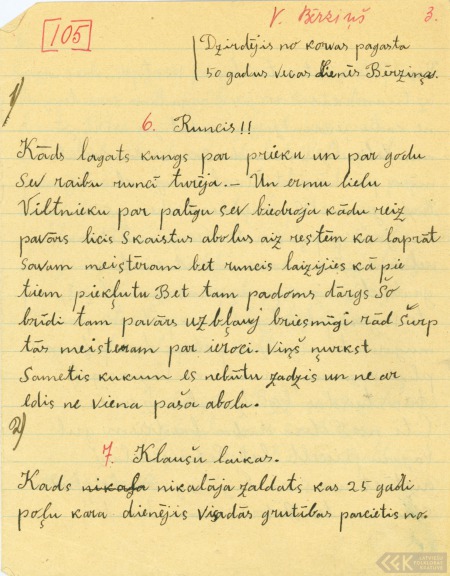 105
V. Bērziņš
3.
Dzirdējis no Kowas pagasta
50 gadus vecas Lienēs Bērziņas.
1)
6. Runcis!!
Kāds lagats kungs par prieku un par godu
Sev raibu runci turēja. – Un ermu lielu
Viltnieku par palīgu sev biedroja kādu reiz
pavārs licis Skaistus abolus aiz restēm ka laprāt
savam meisteram bet runcis laizijies kā pie
tiem piekļutu Bet tam padoms dārgs Šo
brīdi tam pavārs uzbļauj briesmīgi rād Šurp
tās meisteram par ieroci. Viņš ņurkst
Sametis kukum es nebūtu zadzis un ne ar
edis ne viena paša abola.
2)
7. Klaušu laikas.
Kads nikalāja zaldats kas 25 gadi
poļu kara dienējis Visadās grutības parcietis no.